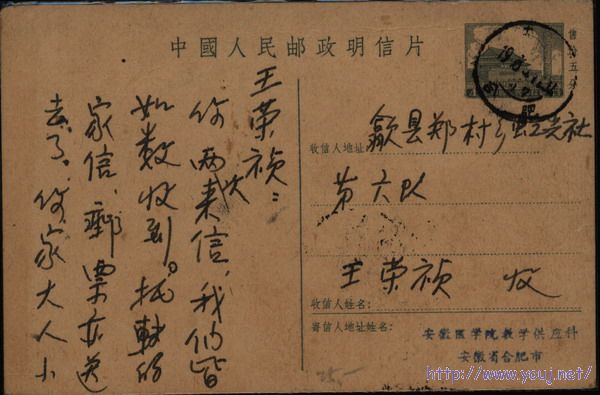 中國人民邮政明信片
王荣祯：
你两次来信，我们皆
如数收到。托转的
家信，邮票亦送
去了，你家大人小
收信人地址：歙县郑村乡虹光社
第六队
收信人姓名：王荣祯 收
寄信人地址姓名：
安徽医学院教学供应科
安徽省合肥市
肥
http://www.youj.net/